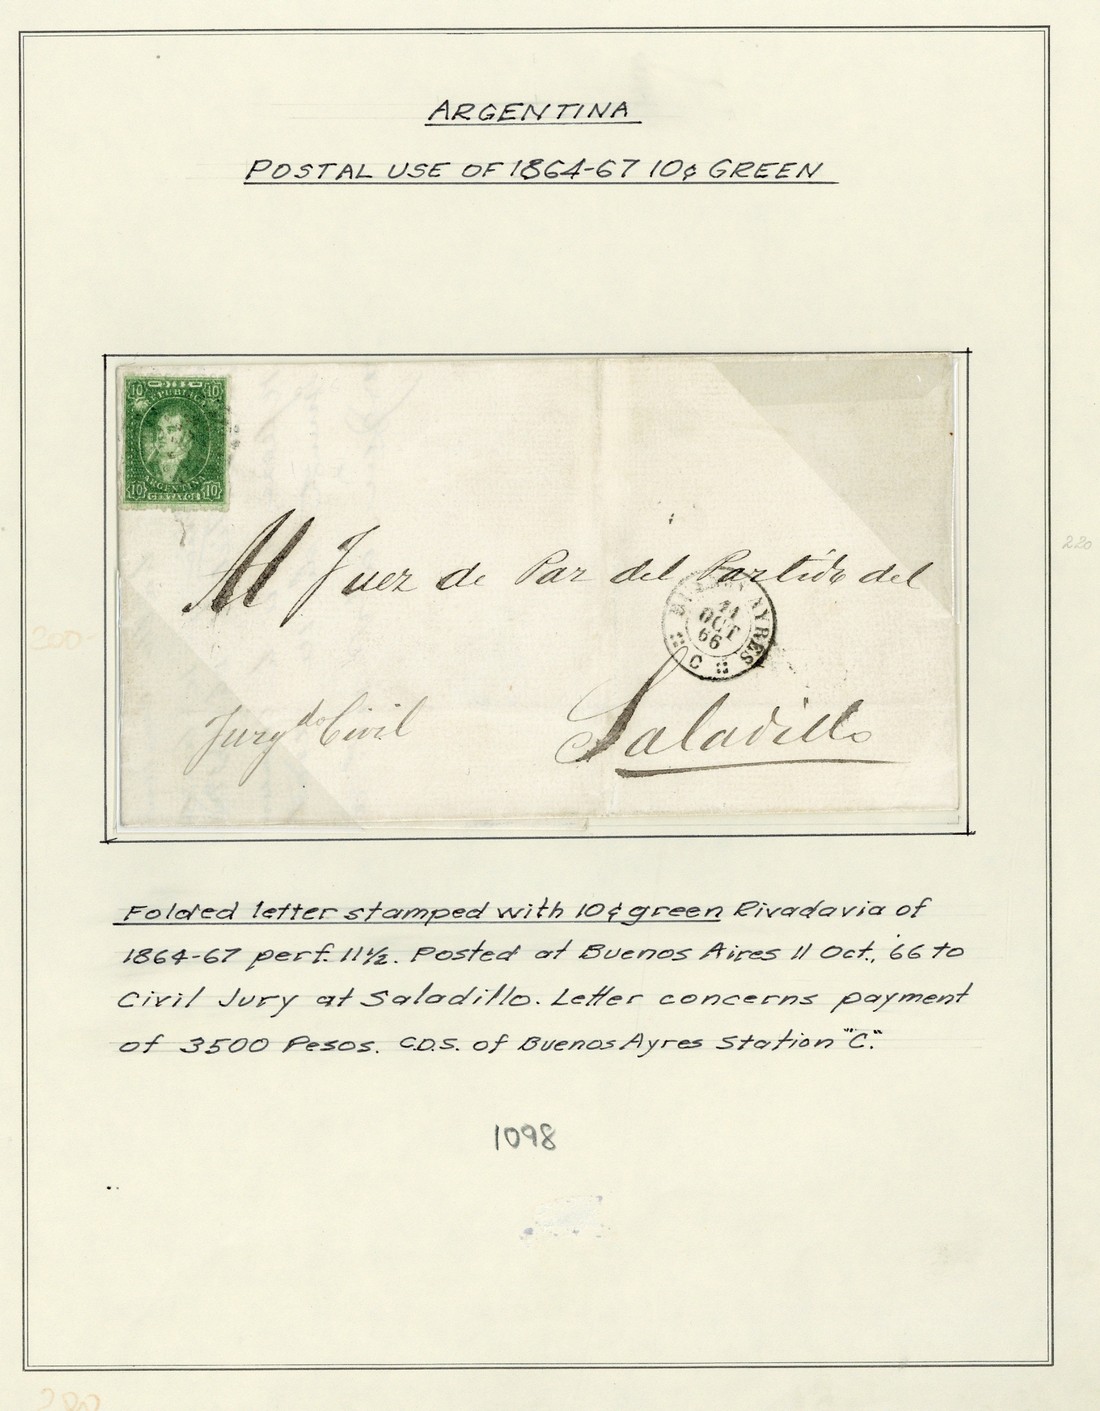 ARGENTINA
POSTAL USE OF 1864-67 10¢ GREEN
10 10
REPUBLICA
ARGENTINA
10 CENTAVOS 10
Al Juez de Paz del Partido del
BUENOS AYRES
11
OCT
66
C
Saladillo
Juzgdo Civil
220
200-
Folded letter stamped with 10¢ green Rivadavia of
1864-67 perf. 11½. Posted at Buenos Aires 11 Oct. '66 to
Civil Jury at Saladillo. Letter concerns payment
of 3500 Pesos. C.D.S. of Buenos Ayres Station "C."
1098
280